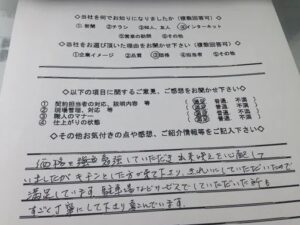 ◇当社を何でお知りになりましたか(複数回答可)
①新聞 ②チラシ ③知人、友人 ④インターネット
⑤営業の訪問 ⑥その他
◇当社をお選び頂いた理由をお聞かせ下さい(複数回答可)
①企業イメージ ②品質 ③価格 ④担当者 ⑤その他
◇以下の項目に関するご意見、ご感想をお聞かせ下さい◇
① 契約担当者の対応、説明内容 等 満足 普通 不満
② 現場管理、対応 等 満足 普通 不満
③ 職人のマナー 満足 普通 不満
④ 仕上がりの状態 満足 普通 不満
◇その他お気付きの点や感想、ご紹介情報等をご記入下さい◇
価格を 勉強していただき 出来映えを心配して
いましたが キチンとした方が来て下さり、きれいにしていただいたので
満足しています。駐車場などサービスでしていただいた所も
すごく丁寧にして下さり喜こんでいます。